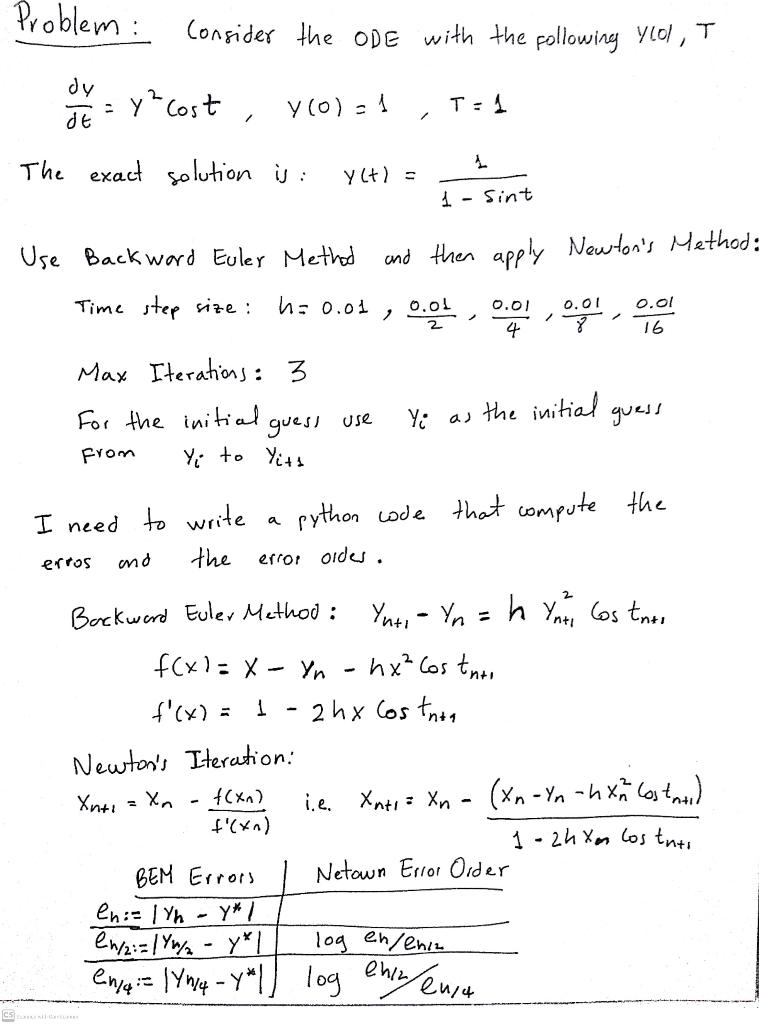 Problem : Consider the ODE with the following y(0), T
dy/dt = y² cos t , y(0) = 1 , T = 1
The exact solution is : y(t) = 1/(1 - sin t)
Use Backward Euler Method and then apply Newton's Method:
Time step size : h = 0.01 , 0.01/2 , 0.01/4 , 0.01/8 , 0.01/16
Max Iterations : 3
For the initial guess use Yi as the initial guess
From Yi to Yi+1
I need to write a python code that compute the
erros and the error order .
Backward Euler Method : Yn+1 - Yn = h Y²n+1 Cos tn+1
f(x) = x - Yn - hx² Cos tn+1
f'(x) = 1 - 2hx Cos tn+1
Newton's Iteration:
Xn+1 = Xn - f(Xn)/f'(Xn) i.e. Xn+1 = Xn - (Xn - Yn - h Xn² Cos tn+1)/(1 - 2h Xn Cos tn+1)
BEM Errors | Netown Error Order
eh := |Yh - Y*|
eh/2 := |Yh/2 - Y*| | log eh/eh/2
eh/4 := |Yh/4 - Y*| | log eh/2/eh/4
CS